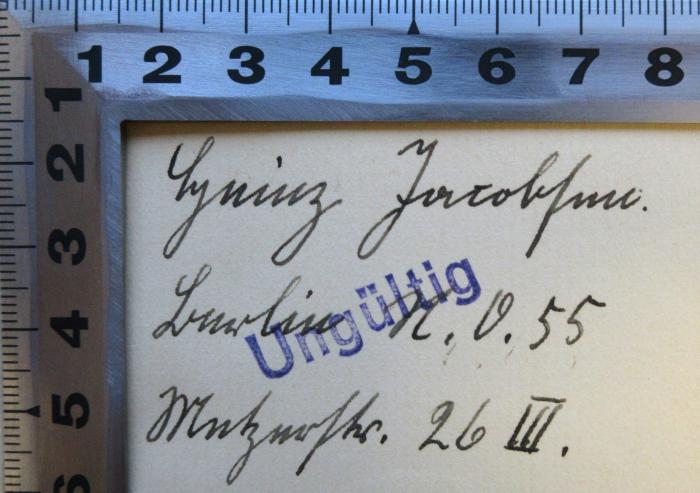 1 2 3 4 5 6 7 8
1
2
3
4
5
6
Heinz Jacobsen.
Berlin N.O. 55
Ungültig
Metzerstr. 26 III.